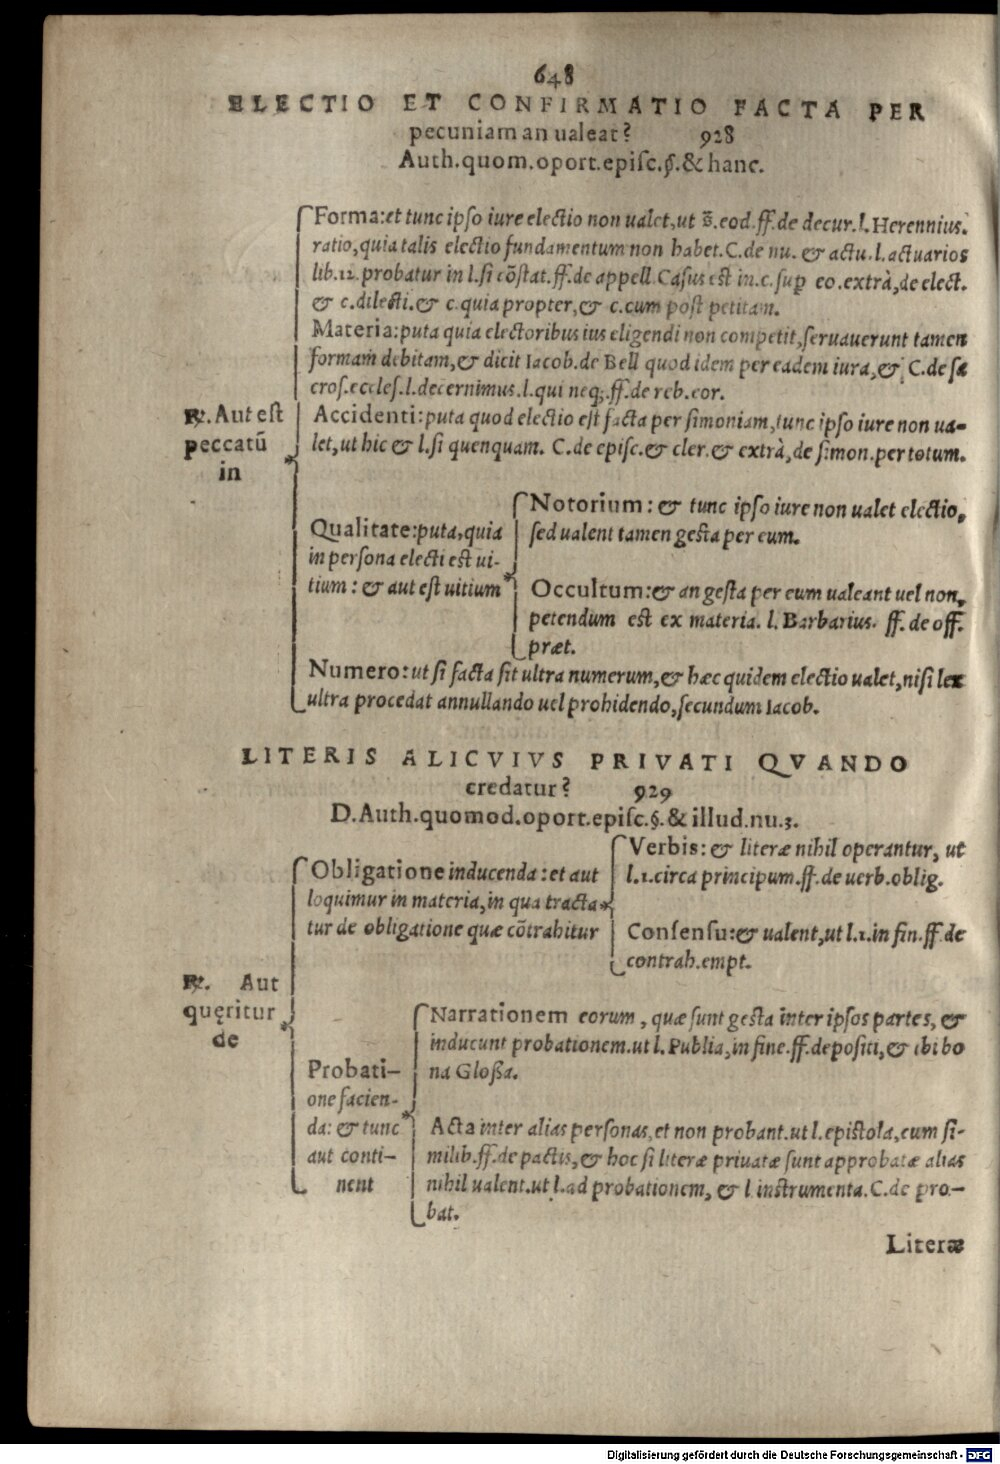 648
ELECTIO ET CONFIRMATIO FACTA PER
pecuniam an ualeat? 928
Auth.quom.oport.episc.§.& hanc.
Forma:et tunc ipso iure electio non ualet,ut s̄.eod.ff.de decur.l.Herennius.
ratio,quia talis electio fundamentum non habet.C.de nu. & actu.l.actuarios
lib.12.probatur in l.si cōstat.ff.de appell.Casus est in.c.sup eo.extrà,de elect.
& c.dilecti.& c.quia propter,& c.cum post petitam.
Materia:puta quia electoribus ius eligendi non competit,seruauerunt tamen
formam debitam,& dicit Iacob.de Bell quod idem per eadem iura,& C.de sa
cros.eccles.l.decernimus.l.qui neq;.ff.de reb.eor.
℞. Aut est
peccatū
in
Accidenti:puta quod electio est facta per simoniam,tunc ipso iure non ua-
let,ut hic & l.si quenquam. C.de episc.& cler.& extrà,de simon.per totum.
Qualitate:puta,quia
in persona electi est ui-
tium: & aut est uitium
Notorium: & tunc ipso iure non ualet electio,
sed ualent tamen gesta per eum.
Occultum:& an gesta per eum ualeant uel non,
petendum est ex materia. l. Barbarius. ff. de off.
præt.
Numero:ut si facta sit ultra numerum,& hæc quidem electio ualet,nisi lex
ultra procedat annullando uel prohidendo,secundum Iacob.
LITERIS ALICVIVS PRIVATI QVANDO
credatur? 929
D.Auth.quomod.oport.episc.§.& illud.nu.3.
℞. Aut
quęritur
de
Obligatione inducenda:et aut
loquimur in materia,in qua tracta
tur de obligatione quæ cōtrahitur
Verbis: & literæ nihil operantur, ut
l.1.circa principum.ff.de uerb.oblig.
Consensu:& ualent,ut l.1.in fin.ff.de
contrah.empt.
Probati-
one facien-
da: & tunc
aut conti-
nent
Narrationem eorum, quæ sunt gesta inter ipsos partes, &
inducunt probationem.ut l.Publia,in fine.ff.depositi,& ibi bo
na Glossa.
Acta inter alias personas,et non probant.ut l.epistola,cum si-
milib.ff.de pactis,& hoc si literæ priuatæ sunt approbatæ alias
nihil ualent.ut l.ad probationem, & l instrumenta.C.de pro-
bat.
Literæ
Digitalisierung gefördert durch die Deutsche Forschungsgemeinschaft - DFG